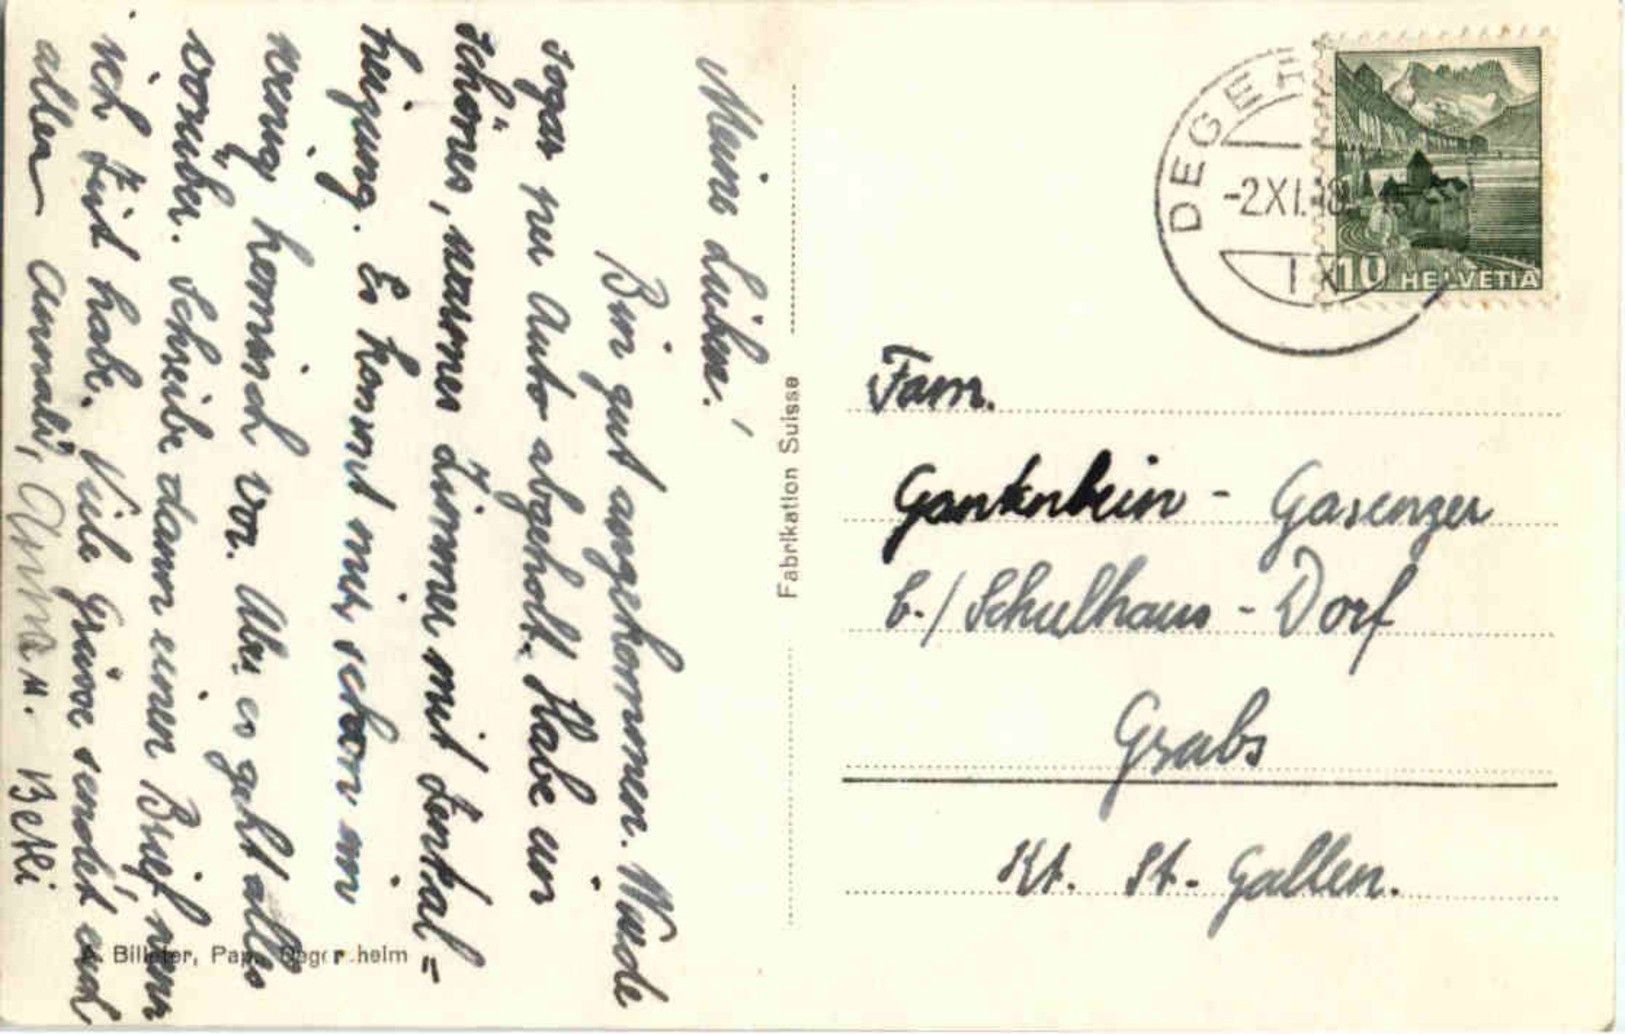 Meine Lieben!
Bin gut angekommen. Wurde
sogar per Auto abgeholt. Habe ein
schönes, warmes Zimmer mit Zentral=
heizung. Es kommt mir schon ein
wenig komisch vor. Aber es geht alles
vorüber. Schreibe dann einen Brief wenn
ich Zeit habe. Viele Grüsse sendet euch
allen Annali, Anna u. Betli
A. Billeter, Pap. Degersheim
Fabrikation Suisse
DEGER
-2.XI.
10 HELVETIA
Fam.
Gantenbein - Gasenzer
b./Schulhaus - Dorf
Grabs
Kt. St. Gallen.